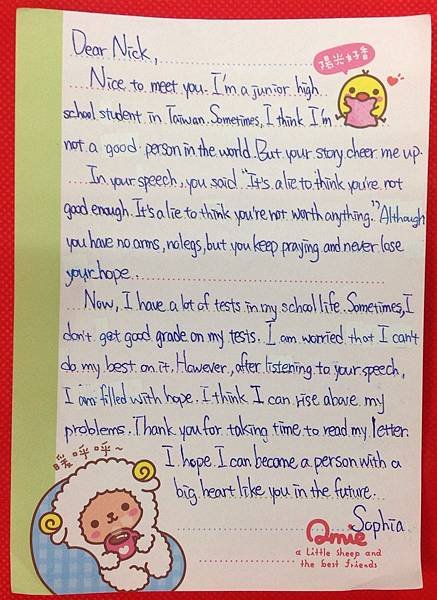 Dear Nick,
陽光好香
Nice to meet you. I'm a junior high
school student in Taiwan. Sometimes, I think I'm
not a good person in the world. But your story cheer me up.
In your speech, you said "It's a lie to think you're not
good enough. It's a lie to think you're not worth anything." Although
you have no arms, no legs, but you keep praying and never lose
your hope.
Now, I have a lot of tests in my school life. Sometimes, I
don't get good grade on my tests. I am worried that I can't
do my best on it. However, after listening to your speech,
I am filled with hope. I think I can rise above my
problems. Thank you for taking time to read my letter.
暖呼呼~
I hope I can become a person with a
big heart like you in the future.
Sophia
Amie
a little sheep and
the best friends